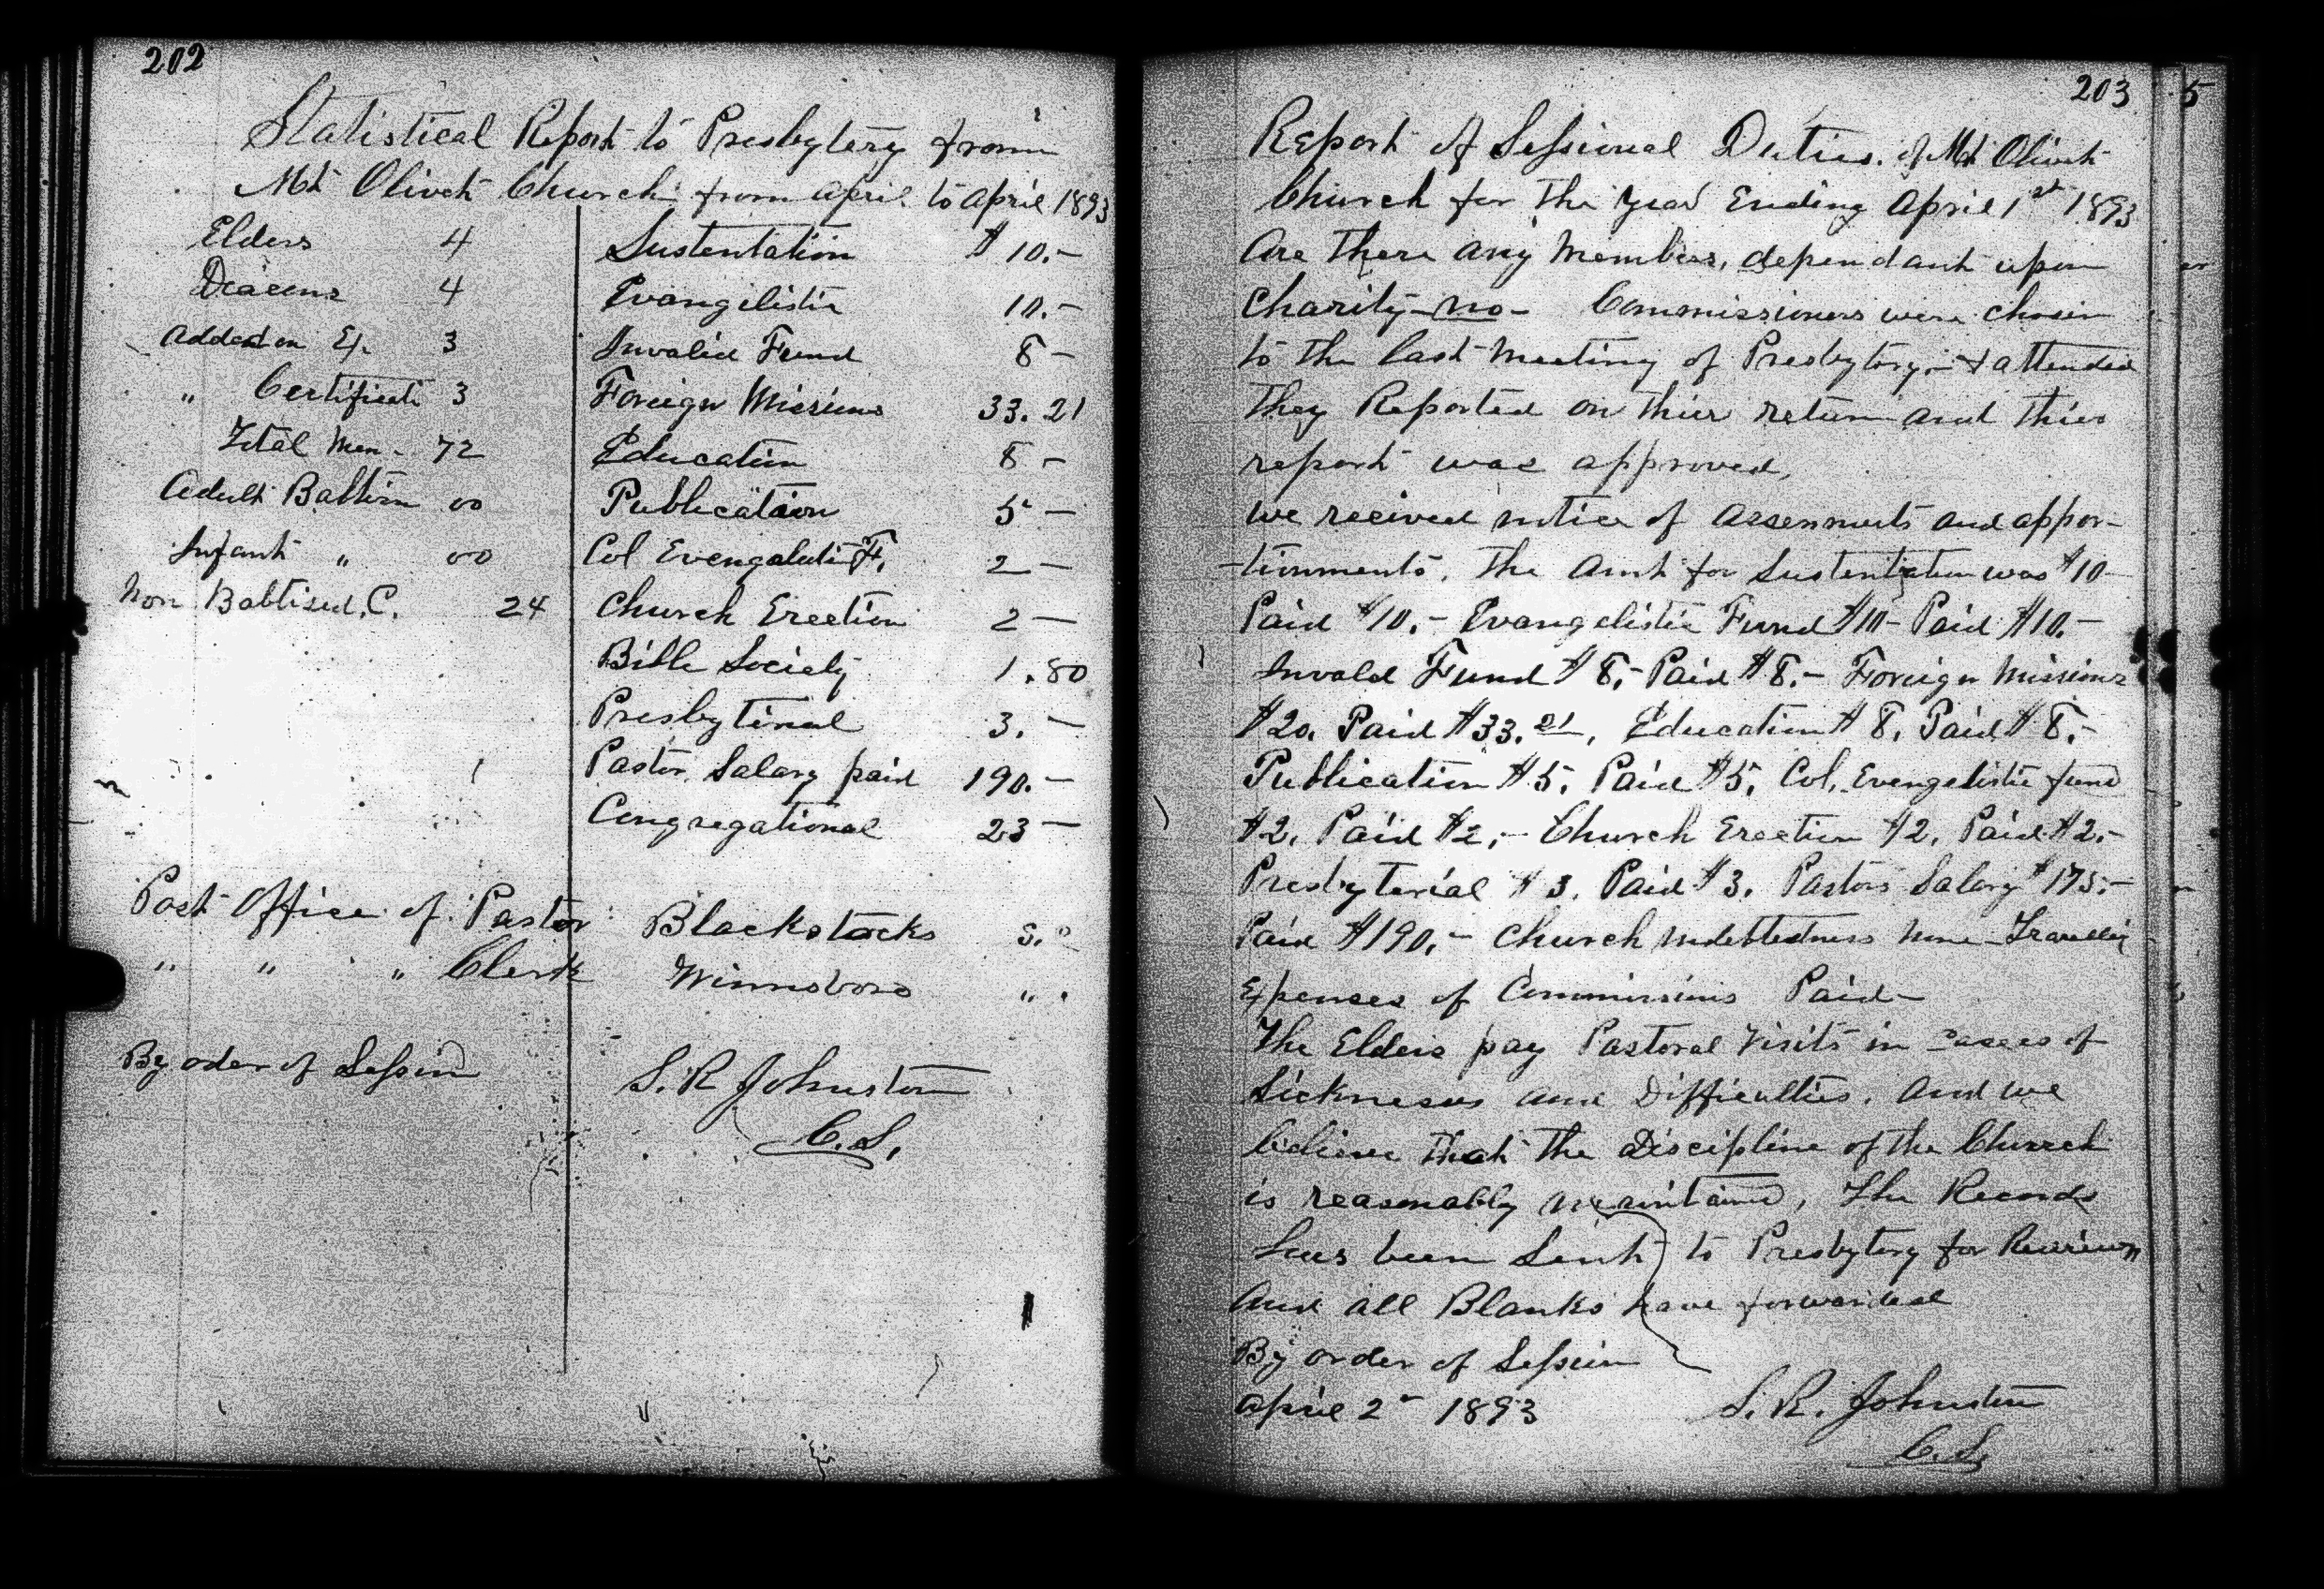 202
Statistical Report to Presbytery from
Mt Olivet Church from April to April 1893
Elders 4 Sustentation $10.—
Deacons 4 Evangelistic 10.—
Added on Ex. 3 Invalid Fund 8—
" Certificate 3 Foreign Missions 33.21
Total Mem- 72 Education 8—
Adult Babtism 00 Publication 5—
Infant " 00 Col Evengelistic F. 2—
Non Babtised. C. 24 Church Erection 2—
Bible Society 1.80
Presbytirial 3.—
Pastor Salary paid 190.—
Congregational 23—
Post Office of Pastor Blackstocks S. C
" " " Clerk Winnsboro " "
By order of Session S. R Johnston
C. S.
203
Report of Sessional Duties of Mt Olivet
Church for the Year Ending April 1st 1893
Are there any Members, dependant upon
Charity—no— Commissioners were chosen
to the last Meeting of Presbytery—& attended
They Reported on thier return and thier
report was approved,
we recived notice of assessments and appor-
-tionments, The Amt for Sustentation was $10—
Paid $10.— Evangelistic Fund $10— Paid $10.—
Invald Fund $8.— Paid $8.— Foreign Missions
$20. Paid $33.21, Education $8. Paid $8.—
Publication $5. Paid $5. Col. Evengelistic fund
$2. Paid $2.— Church Erection $2. Paid $2.—
Presbyterial $3. Paid $3. Pastors Salary $175.—
Paid $190.— Church indebtedness none—Travelling
Expenses of Commissions Paid—
The Elders pay Pastoral Visits in cases of
Sickness and Difficulties. And we
believe that the Discipline of the Church
is reasonably maintained, The Records
has been Sent to Presbytery for Review
And all Blanks have forwarded
By order of Session
April 2d 1893 S. R. Johnston
C. S.
5